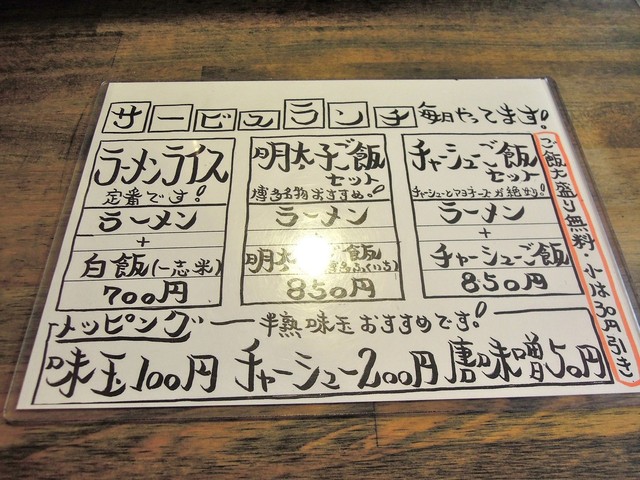 サービスランチ 毎日やってます!
ラーメンライス
定番です!
ラーメン
+
白飯(一志米)
700円
明太子ご飯
セット
博多名物おすすめ!
ラーメン
明太
ご飯
850円
チャーシューご飯
セット
チャーシューとマヨネーズが絶妙!
ラーメン
+
チャーシューご飯
850円
ご飯大盛り無料・小は30円引き
トッピング 半熟味玉おすすめです!
味玉100円 チャーシュー200円 唐味噌50円